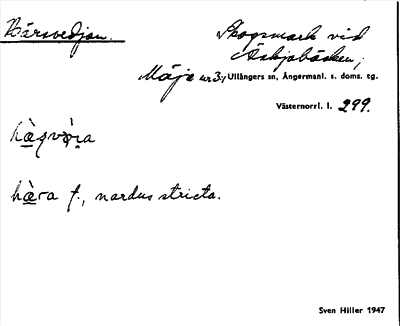 Härsvedjan.
Skogsmark vid
Äskjabäcken,
Mäja nr 3, Ullångers sn, Ångermanl. s. doms. tg.
Västernorrl. l. 299.
hara f., nardus stricta.
Sven Hiller 1947